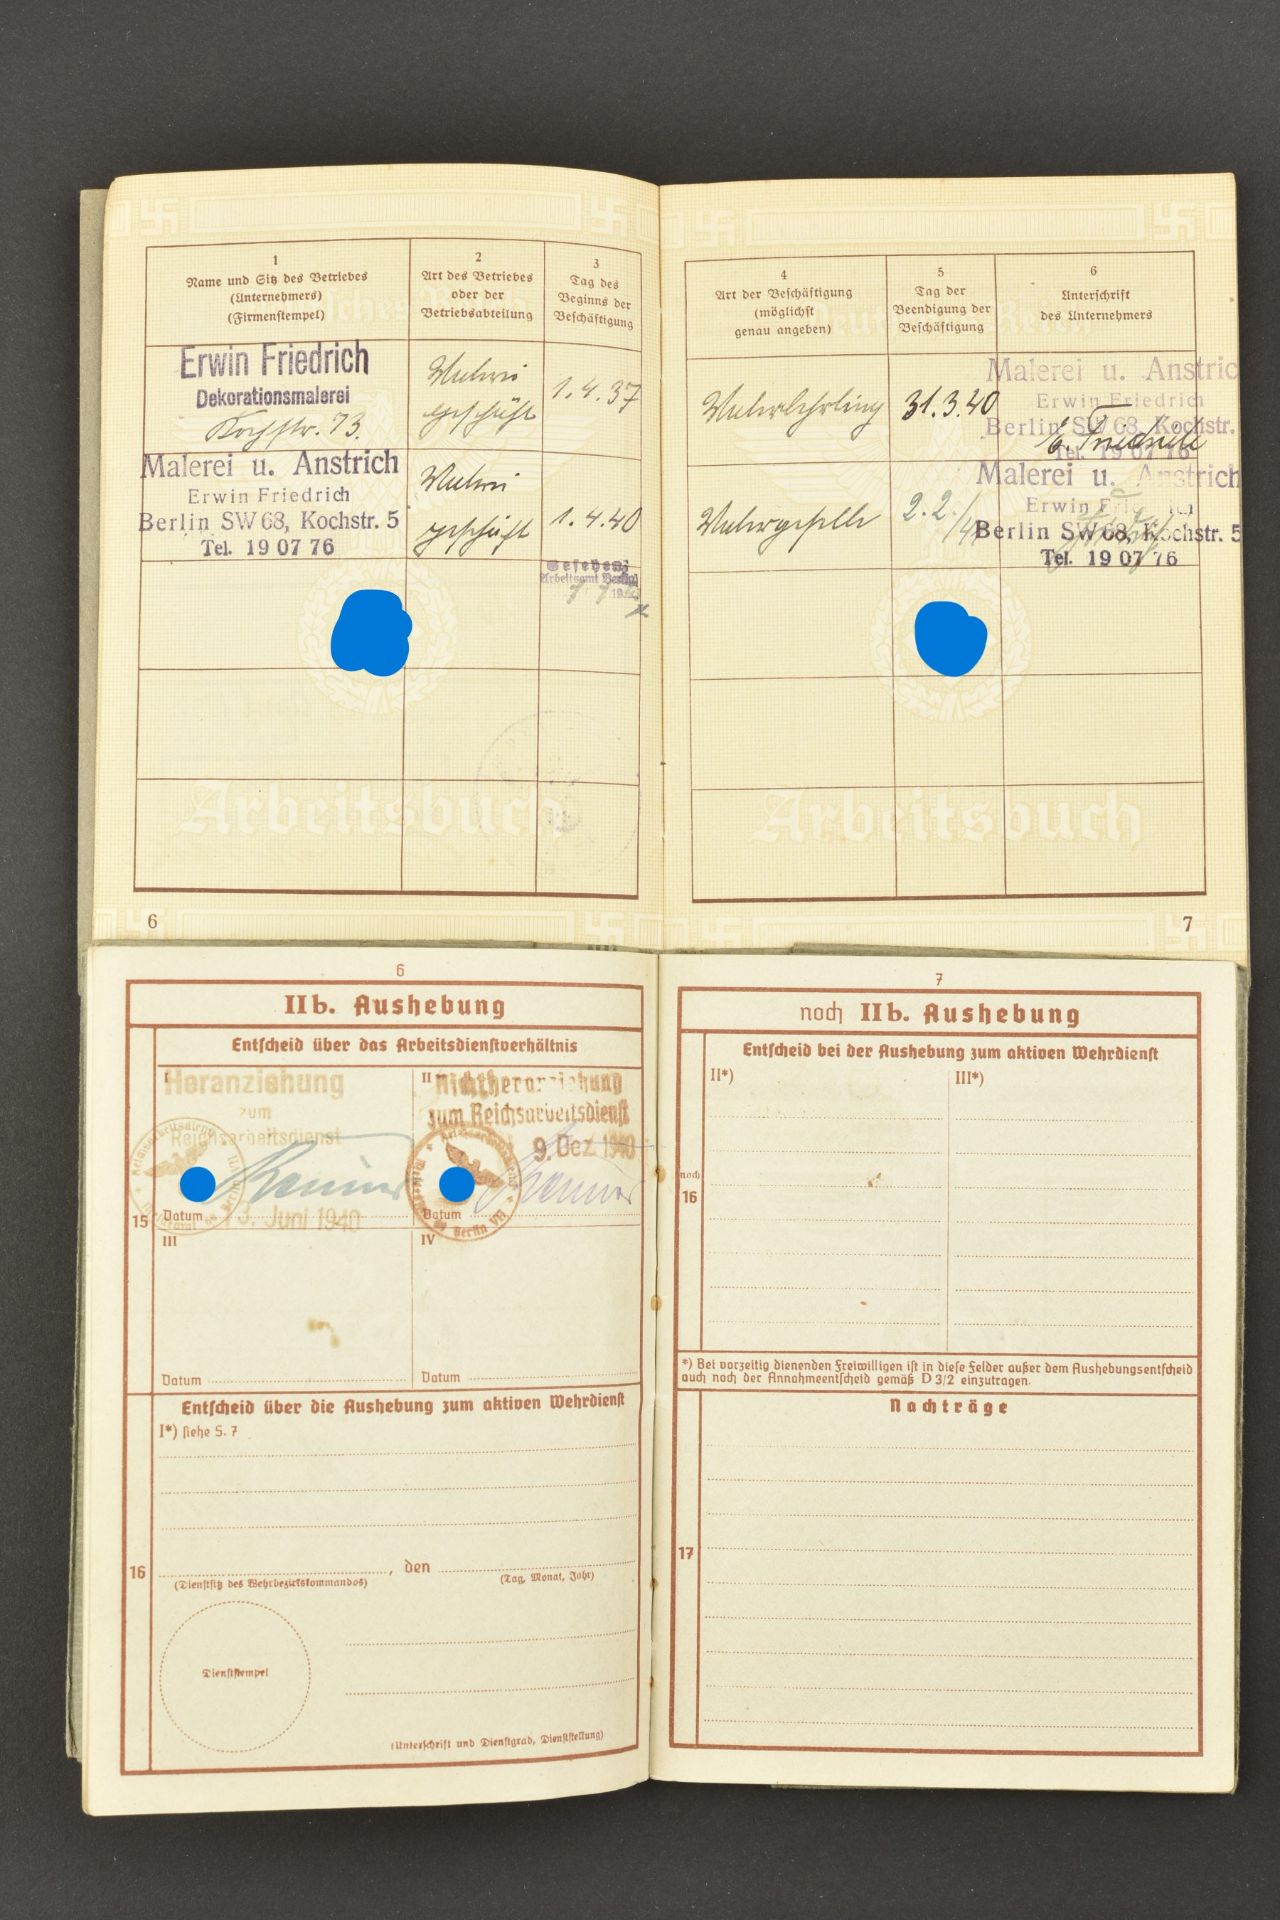 1
Name und Sitz des Betriebes
(Unternehmers)
(Firmenstempel)
2
Art des Betriebes
oder der
Betriebsabteilung
3
Tag des
Beginns der
Beschäftigung
Erwin Friedrich
Dekorationsmalerei
Kochstr. 73.
Maler
geschäft
1.4.37
Malerei u. Anstrich
Erwin Friedrich
Berlin SW 68, Kochstr. 5
Tel. 19 07 76
Maler
geschäft
1.4.40
Gesehen:
Arbeitsamt Berlin
Arbeitsbuch
6
4
Art der Beschäftigung
(möglichst
genau angeben)
5
Tag der
Beendigung der
Beschäftigung
6
Unterschrift
des Unternehmers
Malerlehrling
31.3.40
Malerei u. Anstric
Erwin Friedrich
Berlin SW 68, Kochstr.
Tel. 19 07 76
E. Friedrich
Malergeselle
2.2.
Malerei u. Anstrich
Erwin
Berlin SW 68, Kochstr. 5
Tel. 19 07 76
Deutsches Reich
Arbeitsbuch
7
6
IIb. Aushebung
Entscheid über das Arbeitsdienstverhältnis
15
I
Heranziehung
zum
Reichsarbeitsdienst
Datum
3. Juni 1940
II
Nichtheranziehung
zum Reichsarbeitsdienst
9. Dez. 1940
Datum
III
Datum
IV
Datum
Entscheid über die Aushebung zum aktiven Wehrdienst
I*) siehe S. 7
16
, den
(Dienstsitz des Wehrbezirkskommandos)
(Tag, Monat, Jahr)
Dienststempel
(Unterschrift und Dienstgrad, Dienststellung)
7
noch IIb. Aushebung
Entscheid bei der Aushebung zum aktiven Wehrdienst
II*)
III*)
noch
16
*) Bei vorzeitig dienenden Freiwilligen ist in diese Felder außer dem Aushebungsentscheid
auch noch der Annahmeentscheid gemäß D 3/2 einzutragen.
Nachträge
17